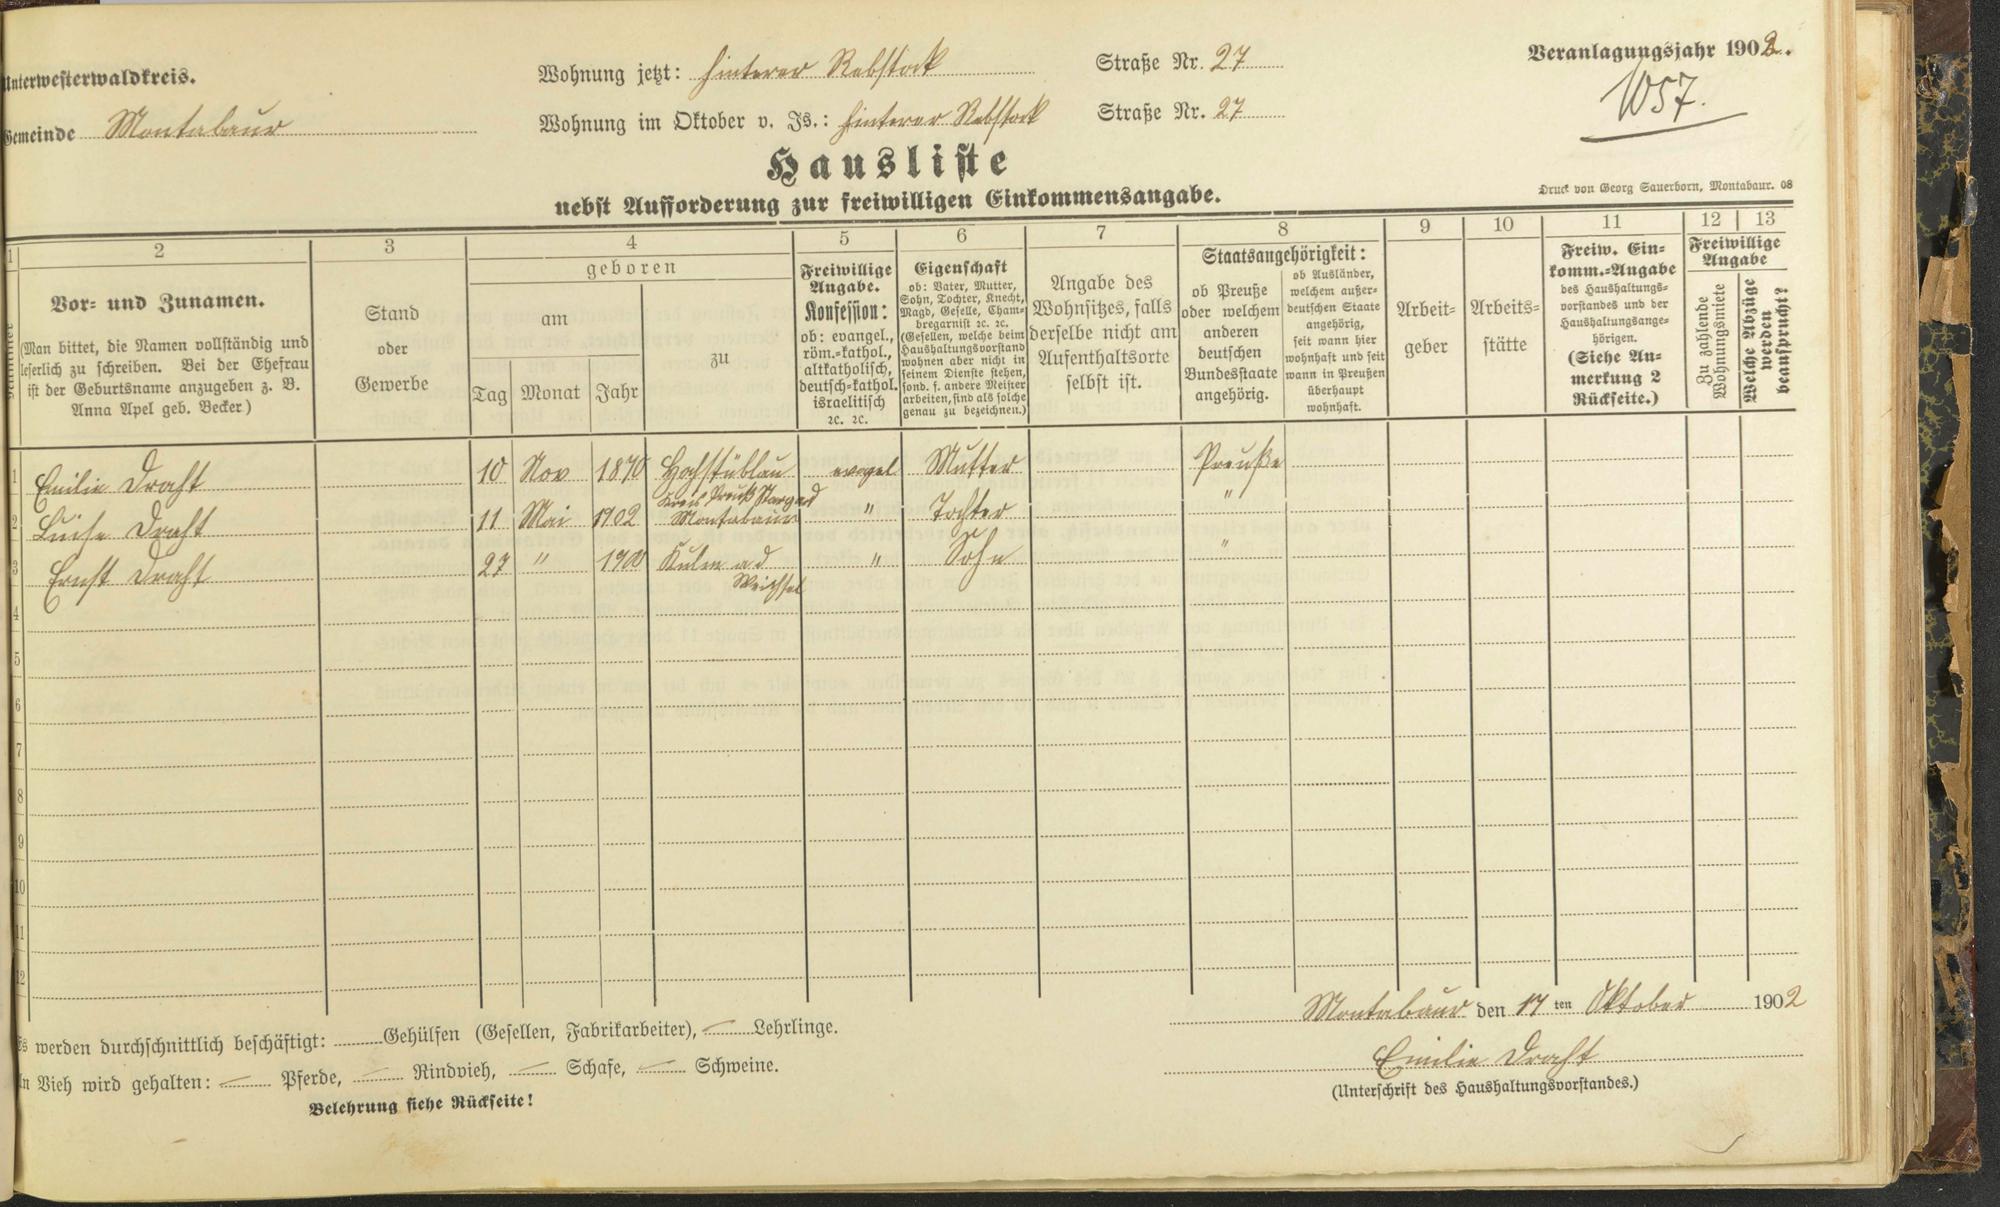 Unterwesterwaldkreis.
Gemeinde Montabaur
Wohnung jetzt: hinterer Rebstock Straße Nr. 27
Wohnung im Oktober v. Js.: hinterer Rebstock Straße Nr. 27
Veranlagungsjahr 1902.
1057.
Hausliste
nebst Aufforderung zur freiwilligen Einkommensangabe.
Druck von Georg Sauerborn, Montabaur. 08
1 2 3 4 5 6 7 8 9 10 11 12 13
Nummer
Vor- und Zunamen.
(Man bittet, die Namen vollständig und
leserlich zu schreiben. Bei der Ehefrau
ist der Geburtsname anzugeben z. B.
Anna Apel geb. Becker)
Stand
oder
Gewerbe
geboren
am
Tag Monat Jahr
zu
Freiwillige
Angabe.
Konfession:
ob: evangel.,
röm.-kathol.,
altkatholisch,
deutsch-kathol.
israelitisch
ꝛc. ꝛc.
Eigenschaft
ob: Vater, Mutter,
Sohn, Tochter, Knecht,
Magd, Geselle, Cham-
bregarnist ꝛc. ꝛc.
(Gesellen, welche beim
Haushaltungsvorstand
wohnen aber nicht in
seinem Dienste stehen,
sond. f. andere Meister
arbeiten, sind als solche
genau zu bezeichnen.)
Angabe des
Wohnsitzes, falls
derselbe nicht am
Aufenthaltsorte
selbst ist.
Staatsangehörigkeit:
ob Preuße
oder welchem
anderen
deutschen
Bundesstaate
angehörig.
ob Ausländer,
welchem außer-
deutschen Staate
angehörig,
seit wann hier
wohnhaft und seit
wann in Preußen
überhaupt
wohnhaft.
Arbeit-
geber
Arbeits-
stätte
Freiw. Ein-
komm.-Angabe
des Haushaltungs-
vorstandes und der
Haushaltungsange-
hörigen.
(Siehe An-
merkung 2
Rückseite.)
Freiwillige
Angabe
Zu zahlende
Wohnungsmiete
Welche Abzüge
werden
beansprucht?
1 Emilie Draht 10 Nov 1870 Hochstüblau evogel Mutter Preuße
Kreis Preuß Stargad
2 Luise Draht 11 Mai 1902 Montabaur " Tochter "
3 Ernst Draht 27 " 1900 Kulm ad " Sohn "
Weichsel
4
5
6
7
8
9
10
11
12
Es werden durchschnittlich beschäftigt: Gehülfen (Gesellen, Fabrikarbeiter), — Lehrlinge.
An Vieh wird gehalten: — Pferde, — Rindvieh, — Schafe, — Schweine.
Belehrung siehe Rückseite!
Montabaur den 17 ten Oktober 1902
Emilie Draht
(Unterschrift des Haushaltungsvorstandes.)